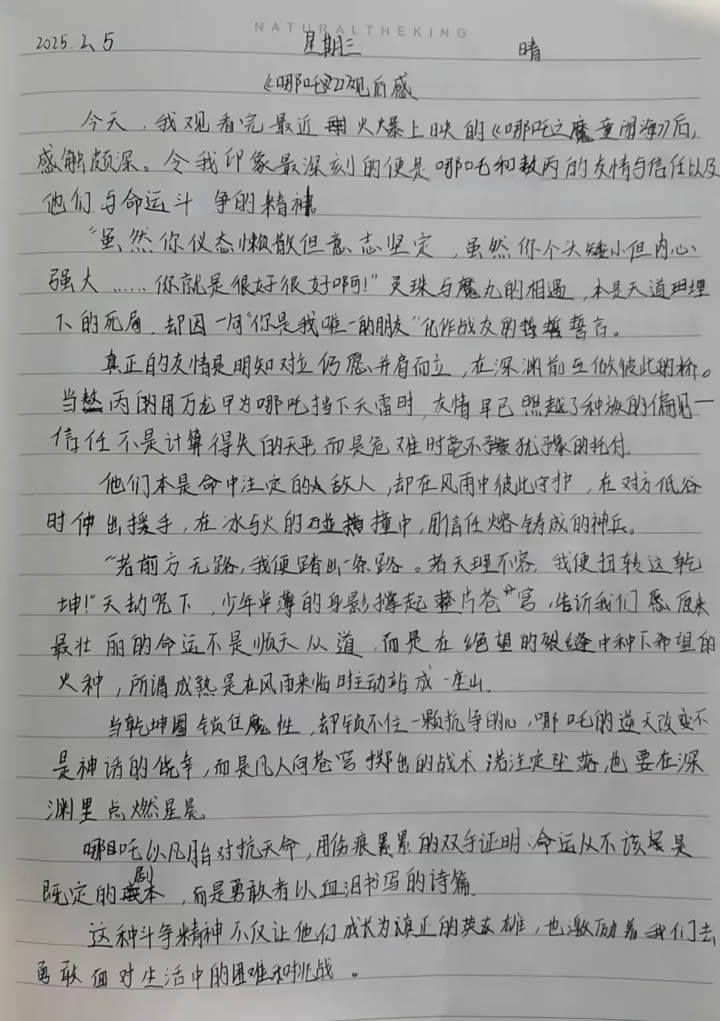 NATURALTHEKING
2025.2.5 星期三 晴
《哪吒2》观后感
今天,我观看完最近火爆上映的《哪吒之魔童闹海》后,
感触颇深。令我印象最深刻的便是哪吒和敖丙的友情与信任以及
他们与命运斗争的精神。
"虽然你仪态懒散但意志坚定,虽然你个头矮小但内心
强大……你就是很好很好啊!"灵珠与魔丸的相遇,本是天道
下的死局,却因一句"你是我唯一的朋友"化作战友的誓言。
真正的友情是明知对立仍愿并肩而立,在深渊前互做彼此的桥。
当敖丙的用万龙甲为哪吒挡下天雷时,友情早已越了种族的偏见—
信任不是计算得失的天平,而是危难时毫不犹豫的托付。
他们本是命中注定的敌人,却在风雨中彼此守护,在对方低谷
时伸出援手,在冰与火的碰撞中,用信任熔铸成的神兵。
"若前方无路,我便踏出一条路。若天理不容,我便扭转这乾
坤!"天劫咒下,少年单薄的身影撑起整片苍宫,告诉我们原来
最壮丽的命运不是顺天从道,而是在绝望的裂缝中种下希望的
火种,所谓成熟是在风雨来临时主动站成一座山.
当乾坤圈锁住魔性,却锁不住一颗抗争的心,哪吒的逆天改变不
是神话的侥幸,而是凡人向苍宫掷出的战术 诺注定坠落,也要在深
渊里点燃星晨。
哪吒以凡胎对抗天命,用伤痕累累的双手证明:命运从不该是
既定的剧本,而是勇敢者以血泪书写的诗篇.
这种斗争精神不仅让他们成长为真正的英雄,也激励着我们去
勇敢面对生活中的困难和挑战。